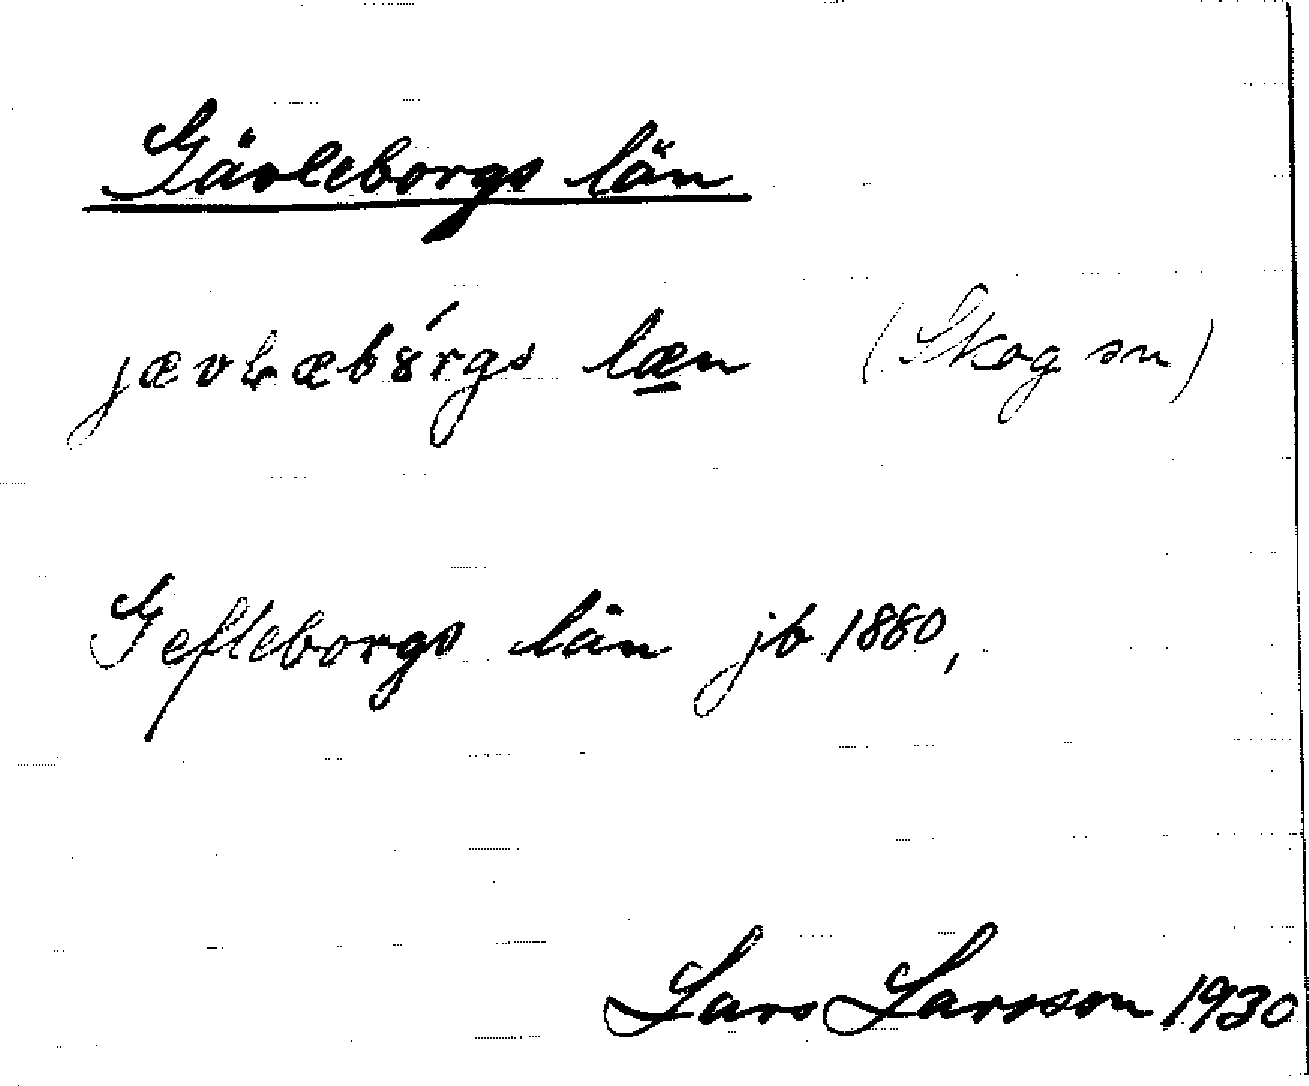 Gävleborgs län
jævlæbȣ́rgs læn (Skog sn)
Gefleborgs län jb 1880,
Lars Larsson 1930